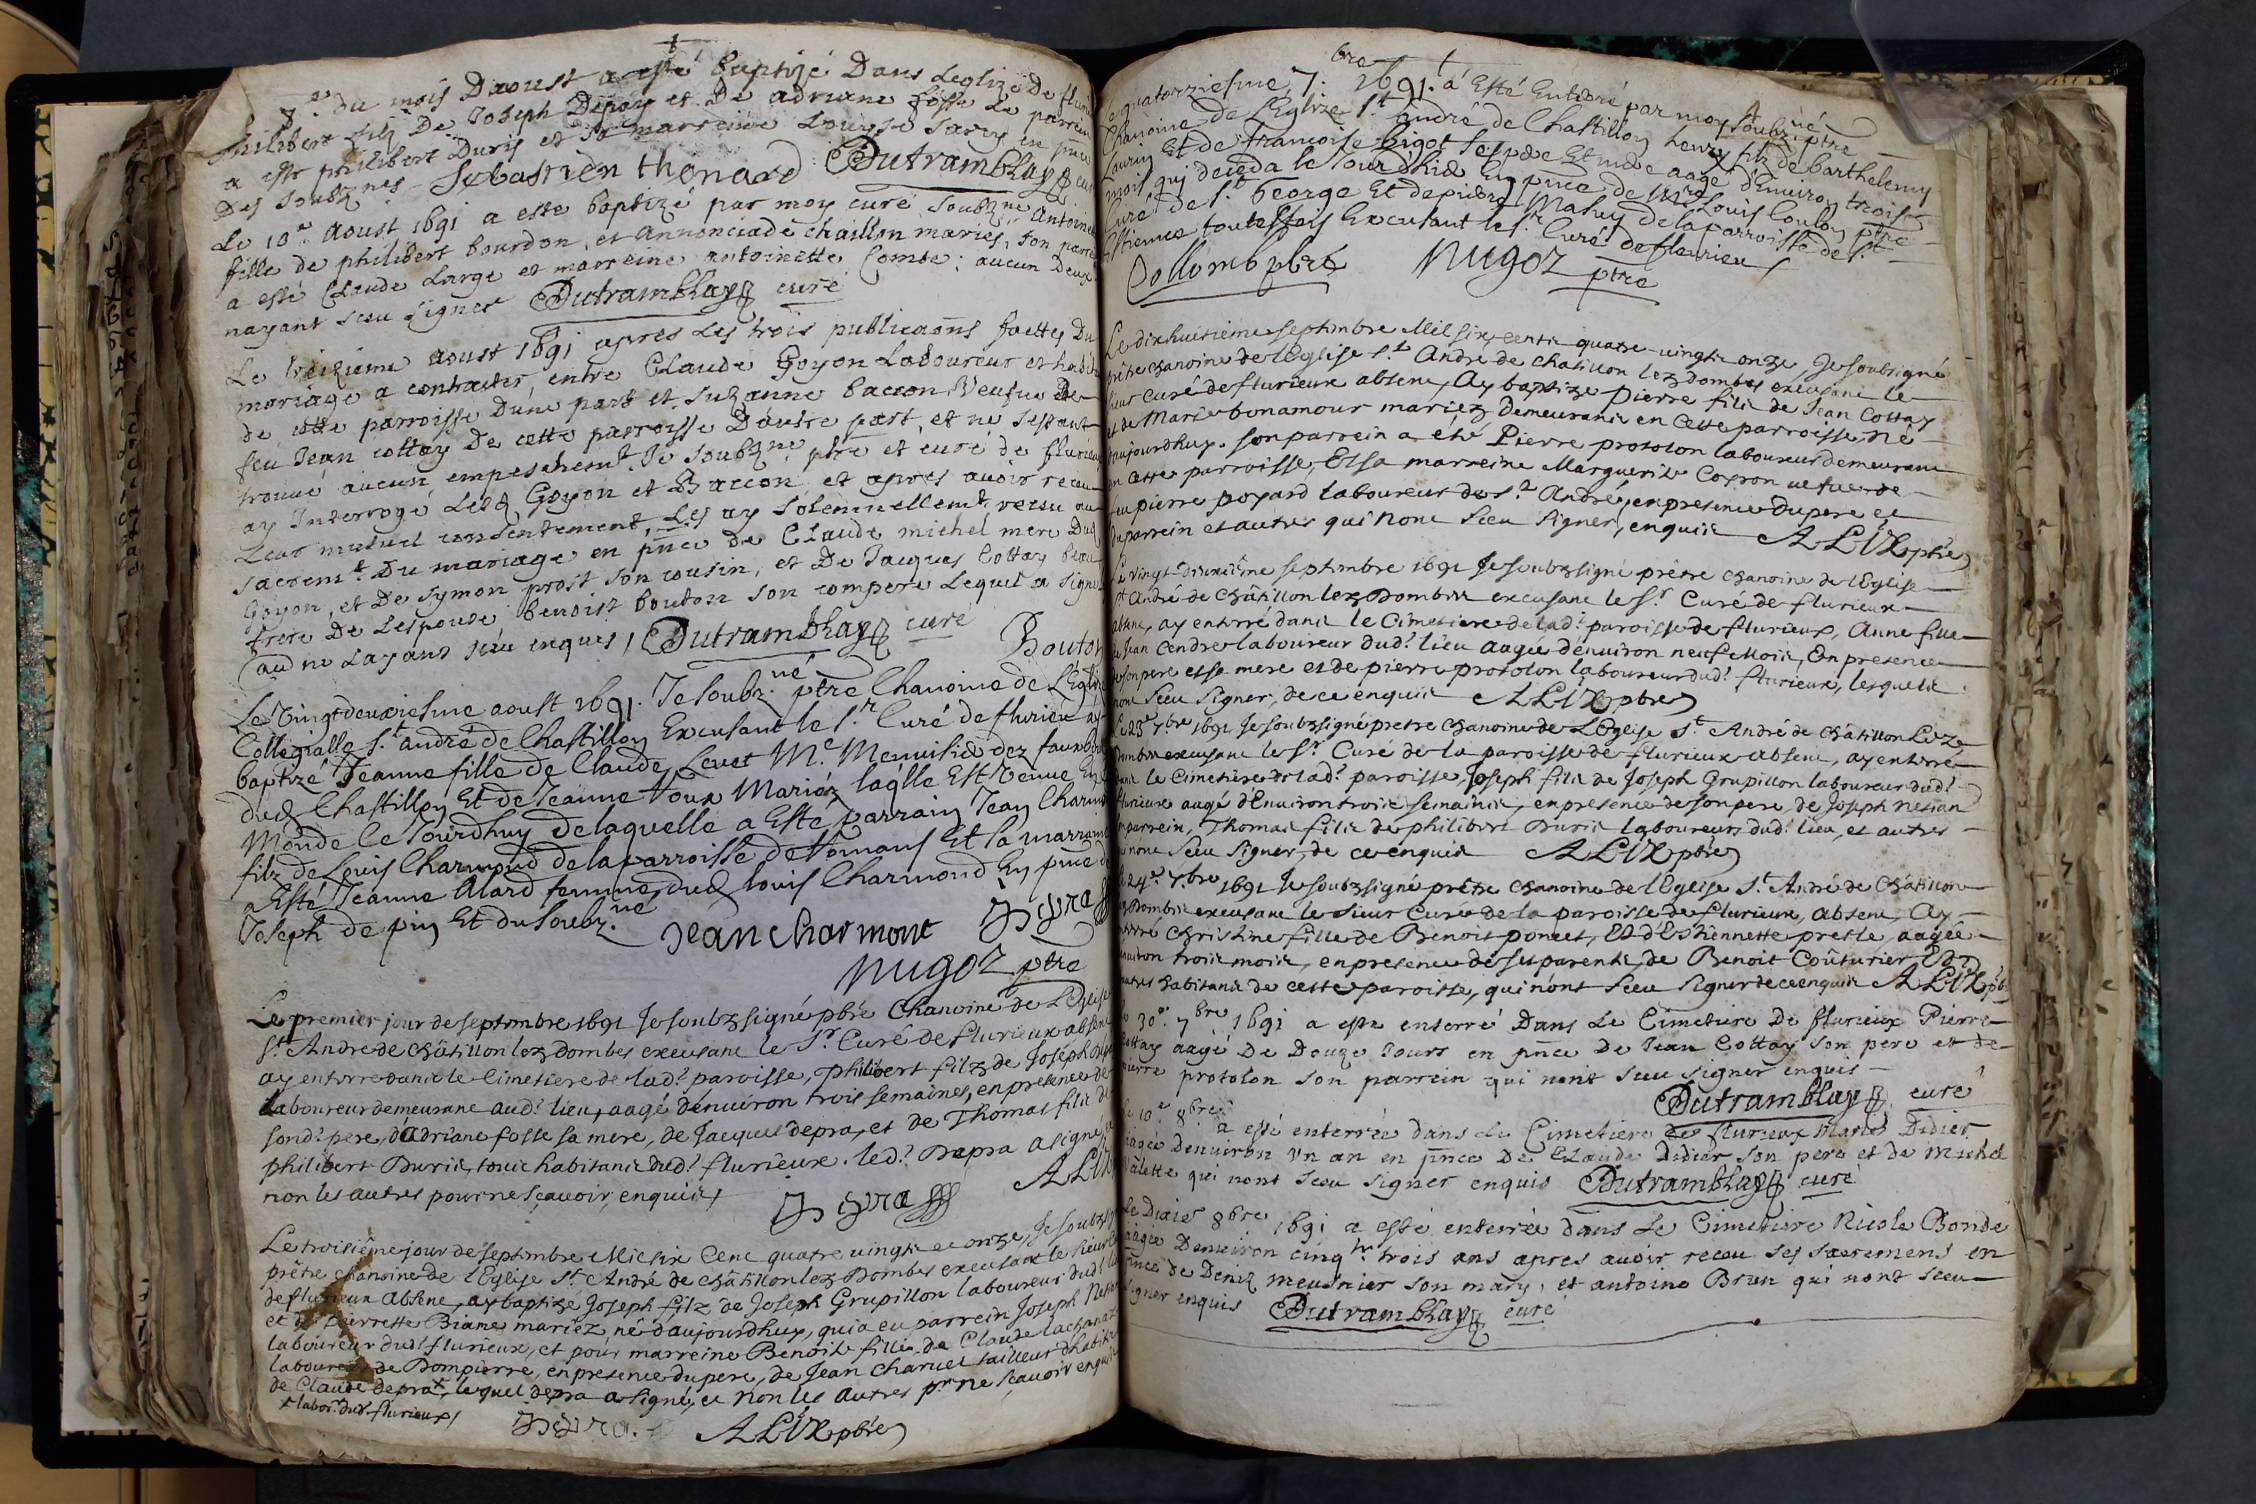 8.e du mois Daoust a esté baptizé Dans Leglize De
philibert filz De Joseph Depra et De adriane fosse Le parrein
a este philibert Duris et sa marreine Louyse Sary en pnce
Des soubznés Sebastien thenard Dutramblay curé
Le 10.e Aoust 1691 a este baptizé par moy curé soubzne Antoinette
fille de philibert bourdon, et Annonciade Chaillon mariés, son parrein
a esté Claude Large et marreine antoinette Comte: aucun Deux
nayant sceu signer Dutramblay curé
Le treizieme aoust 1691 apres Les trois publicaōns faittes Du
mariage a contracter, entre Claude Goyon Laboureur et
de cette parroisse Dune part et Suzanne baccon Veufue De
feu Jean cottay De cette parroisse Dautre part, et ne sestant
trouvé aucun empeschemt. Je soubzne. ptre et curé de flurieux
ay Interrogé Lesd Goyon et Baccon et apres avoir receu
Leur mutuel consentement, Les ay solemnellemt. receu au
sacremt. Du mariage en pnce de Claude michel mere Dud
Goyon, et De symon prost son cousin, et De Jacques Cottay beau
frere De Lespouse benoist bouton son compere Lequel a signé
au ne Layans sceu enquis / Dutramblay curé Bouton
Le Vingtdeuxiesme aoust 1691. Je soubz.né ptre Chanoine de L'Eglise
Collegialle St. andré de Chastillon Excusant le Sr. Curé de flurieu ay
baptizé Jeanne fille de Claude Levet Me. Menuisier dez fauxbourg
dud Chastillon Et de Jeanne Roux Mariéz laqlle Est Venue En
Monde le Jourdhuy de laquelle a Esté parrain Jean Charmond
filz de Louis Charmond de la parroisse de Romans Et la marraine
a Esté Jeanne Alard femme dud Louis Charmond En pnce de
Joseph de pin Et du soubz.né Jean charmont Depra
Nugoz ptre
Le premier jour de septembre 1691 Je soubzsigné pbre Chanoine de L'Eglise
St. André de Châtillon lez dombes excusant le Sr. Curé de flurieux absent
ay enterré dans le Cimetiere de lad.e paroisse, philibert filz de Joseph Depra
laboureur demeurant aud.t lieu, aagé denuiron trois semaines, en presence de
sond.t pere, d'Adriane fosse sa mere, de Jacques depra, et de Thomas filz de
philibert Duris, tous habitans dud.t flurieux. led.t Depra a signé
non les autres pour ne sçauoir, enquis / Depra ALIX
Le troisième jour de septembre Mil six Cent quatre vingts et onze, Je soubzsigné
prêtre chanoine de l'Eglise St. André de châtillon lez Dombes excusant le sieur Curé
de flurieux absent, ay baptizé Joseph filz de Joseph Grupillon laboureur dud.t lieu
et de pierrette Biame mariez, né d'aujourdhuy, qui a eu parrein Joseph
laboureur dud.t flurieux, et pour marreine Benoite fille de Claude
laboureur de Dompierre, en presence du pere, de Jean charuet tailleur d'habits
de Claude depra+, lequel depra a signé, et non les autres pr. ne sçauoir enquis
+ labor. dud. flurieux / Depra. ALIX pbre
Le quatorziesme 7.bre 1691. a Esté Enterré par moy soubz.né ptre
Chanoine de L'Eglize St. andré de Chastillon henry filz de barthelemy
Laurin Et de francoise bigot ses pere Et mere aagé d'Enuiron trois
mois qui deceda le Jour d'hier En pnce de Mre Louis Coulon ptre
Curé de St. George Et de pierre Mahuy de la parroisse de St.
Estienne toutesfois Excusant le Sr. Curé de fleurieu
Collomb ptre Nugoz ptre
Le dixhuitième septembre Mil six cents quatre vingts onze, Je soubsigné
prêtre chanoine de l'Eglise St. André de chatillon lez dombes excusant le
sieur curé de flurieux absent, Ay baptize Pierre filz de Jean Cottay
et de Marie bonamour mariez demeurans en cette parroisse, né
aujourdhuy. son parrein a été Pierre protolon laboureur demeurant
en cette parroisse, Et sa marreine Marguerite Corron uefue de
feu pierre poyard laboureur de St. André, en presence du pere et
du parrein et autres qui n'ont sceu signer, enquis ALIX pbre
Le vingt-deuxième septembre 1691 Je soubzsigné prêtre chanoine de l'Eglise
St. André de châtillon lez Dombes excusant le Sr. Curé de flurieux
absent, ay enterré dans le Cimetiere de lad.e paroisse de flurieux, Anne fille
de Jean Cendre laboureur dud.t lieu aagée denuiron neuf Mois, En presence
de son pere et sa mere et de pierre protolon laboureur dud.t flurieux, lesquels
n'ont sceu signer, de ce enquis ALIX pbre
Le 23e 7bre 1691 Je soubzsigné pretre chanoine de L'Eglise St. André de châtillon Lez
Dombes excusant le Sr. Curé de la paroisse de flurieux absent, ay enterré
dans le Cimetiere de lad.e paroisse, Joseph filz de Joseph Grupillon laboureur dud.t
flurieux aagé d'Enuiron trois semaines, en presence de son pere, de Joseph
parrein, Thomas filz de philibert Duris laboureurs dud.t lieu, et autres
n'ont sceu signer, de ce enquis ALIX pbre
Le 24e 7.bre 1691 Je soubzsigné prêtre chanoine de l'Eglise St. André de Châtillon
lez Dombes excusant le sieur Curé de la paroisse de flurieux, absent, Ay
enterré Christine fille de Benoit poncet, Et d'Estiennette presle, aagée
denuiron trois mois, en presence de ses parents, de Benoit Coûturier Et
autres habitans de cette paroisse, qui n'ont sceu signer de ce enquis ALIX pbre
Le 30e. 7bre 1691 a este enterré Dans Le Cimetiere De flurieux Pierre
Cottay aagé De Douze Jours en pnce De Jean Cottay son pere et de
pierre protolon son parrein qui nont sceu signer enquis
Dutramblay curé
Le 10e 8bre. a esté enterrée dans Le Cimetiere de flurieux Marie Didier
aagée Denuiron Un an en pnce De Claude Didier son pere et de Michel
qui nont sceu signer enquis Dutramblay curé
Le Dixie 8bre 1691 a esté enterrée dans Le Cimetiere Nicole Bondé
aagée Denuiron cinqte. trois ans apres auoir receu ses sacremens en
pnce de Deniz meusnier son mary, et antoine Brun qui nont sceu
signer enquis Dutramblay curé